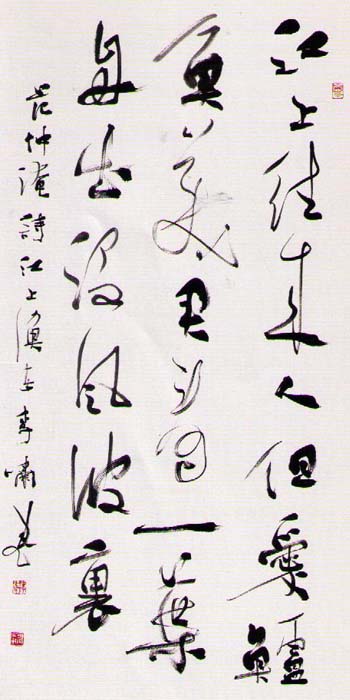 江上往來人但愛鱸
魚美君看一葉
舟出没風波裏
范仲淹詩江上漁者李嘯